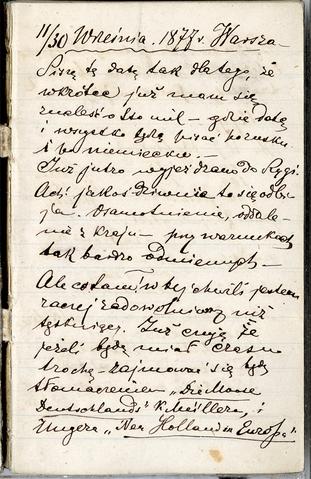 11/30 Września. 1877 r. Warsza-
Piszę tę datę tak dlatego, że
wkrótce już mam się
znaleść o sto mil – gdzie datę
i wszystko będę pisać po rusku
i po niemiecku. –
Już jutro wyjeżdżam do Rygi.
Ach! jakoś dziwnie to się odbi-
ja. Osamotnienie, oddale-
nie z kraju – przy warunkach
tak bardzo odmiennych –
Ale co tam! w tej chwili jestem
raczej zadowolniony niż
tęskniący. Już czuję że
jeżeli będę miał czasu
trochę – zajmować się będę
tłomaczeniem „Die Moore
Deutschlands" K. Müllera, i
Ungera „Neu Holland in Europa".